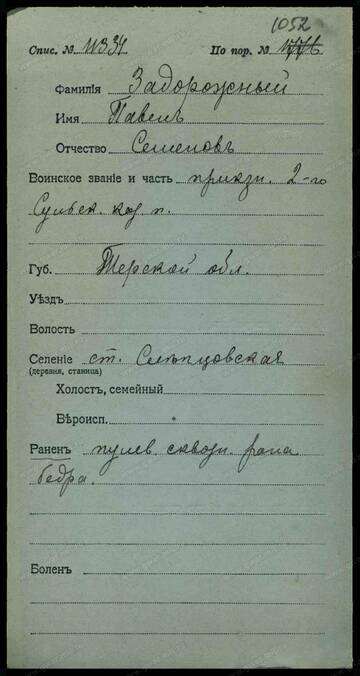 1052
Спис. № 11334 По пор. № 1776
Фамилія Задорожный
Имя Павелъ
Отчество Семеновъ
Воинское званіе и часть приказн. 2-го
Сунженск. каз. п.
Губ. Терской обл.
Уѣздъ
Волость
Селеніе ст. Слѣпцовская
(деревня, станица)
Холостъ, семейный
Вѣроисп.
Раненъ пулев. сквозн. рана
бедра.
Боленъ